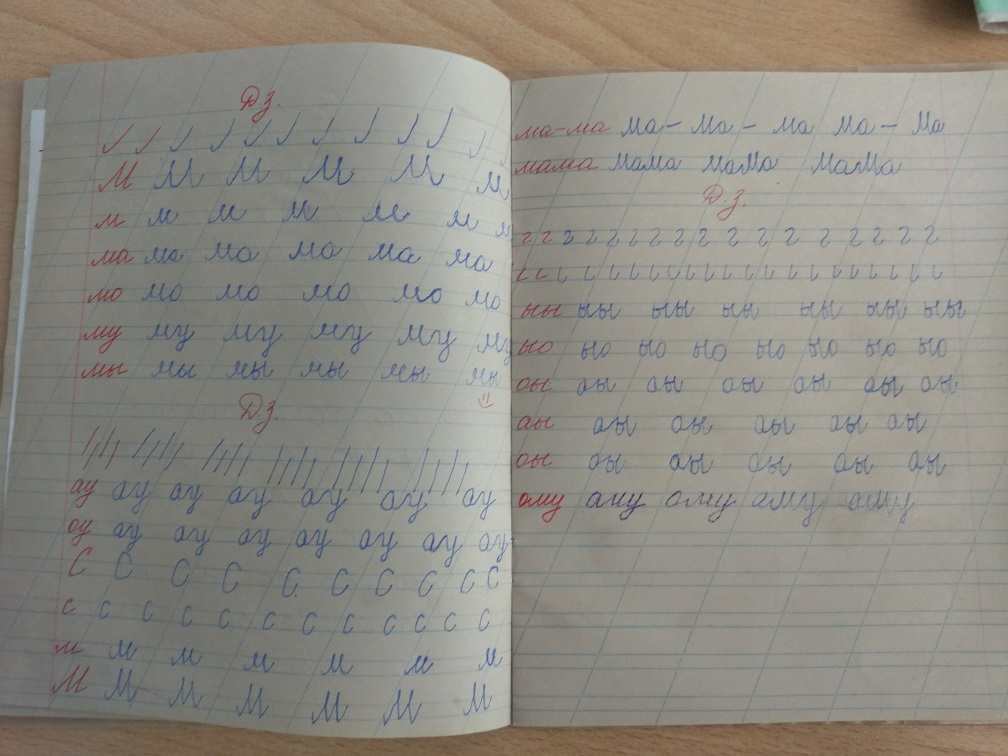 Дз.
М М М М М М
м м м м м м м
ма ма ма ма ма ма
мо мо мо мо мо мо
му му му му му му
мы мы мы мы мы мы
Дз
ау ау ау ау ау ау ау
оу ау ау ау ау ау ау ау
С С С С С С С С С С
с с с с с с с с с с с
м м м м м м м
М М М М М М М
ма-ма Ма - Ма - ма Ма - Ма
мама мама маМа МаМа
Д.з.
ыы ыы ыы ыы ыы ыы ыы
ыо ыо ыо ыо ыо ыо ыо ыо
оы оы оы оы оы оы оы
аы аы аы аы аы аы
оы оы аы оы оы аы
ому аму ому аму аму